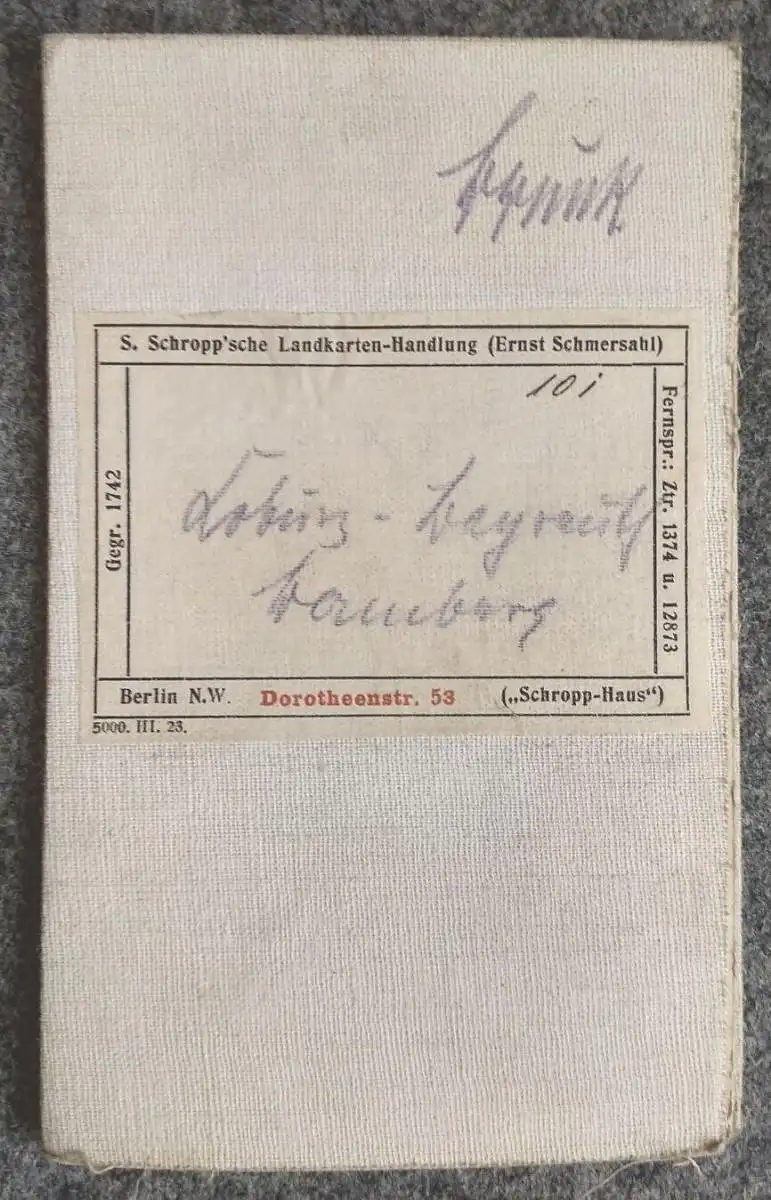 S. Schropp'sche Landkarten-Handlung (Ernst Schmersahl)
10 i
Gegr. 1742
Fernspr.: Ztr. 1374 u. 12873
Coburg - Bayreuth
Bamberg
Berlin N.W. Dorotheenstr. 53 („Schropp-Haus“)
5000. III. 23.